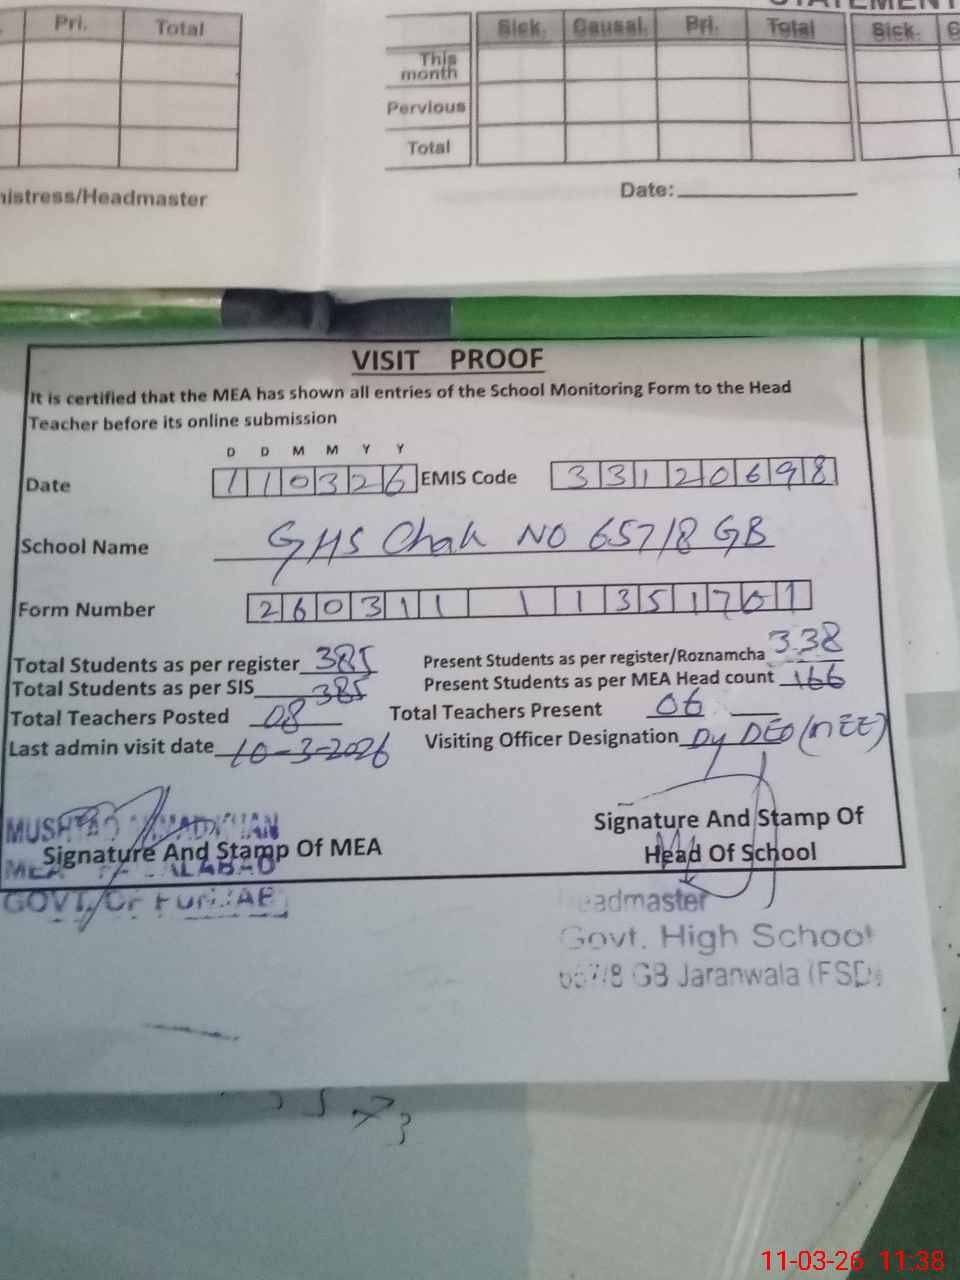 STATEMENT
Pri. Total
Sick. Causal. Pri. Total Sick.
This
month
Pervious
Total
mistress/Headmaster
Date:
VISIT PROOF
It is certified that the MEA has shown all entries of the School Monitoring Form to the Head
Teacher before its online submission
D D M M Y Y
Date 110326 EMIS Code 33120698
School Name GHS Chak NO 657/8 GB
Form Number 260311 11351701
Total Students as per register 385 Present Students as per register/Roznamcha 338
Total Students as per SIS 385 Present Students as per MEA Head count 166
Total Teachers Posted 08 Total Teachers Present 06
Last admin visit date 10-3-2026 Visiting Officer Designation Dy DEO (MEE)
Signature And Stamp Of MEA
GOVT. OF PUNJAB
Signature And Stamp Of
Head Of School
Headmaster
Govt. High School
657/8 GB Jaranwala (FSD)
11-03-26 11:38